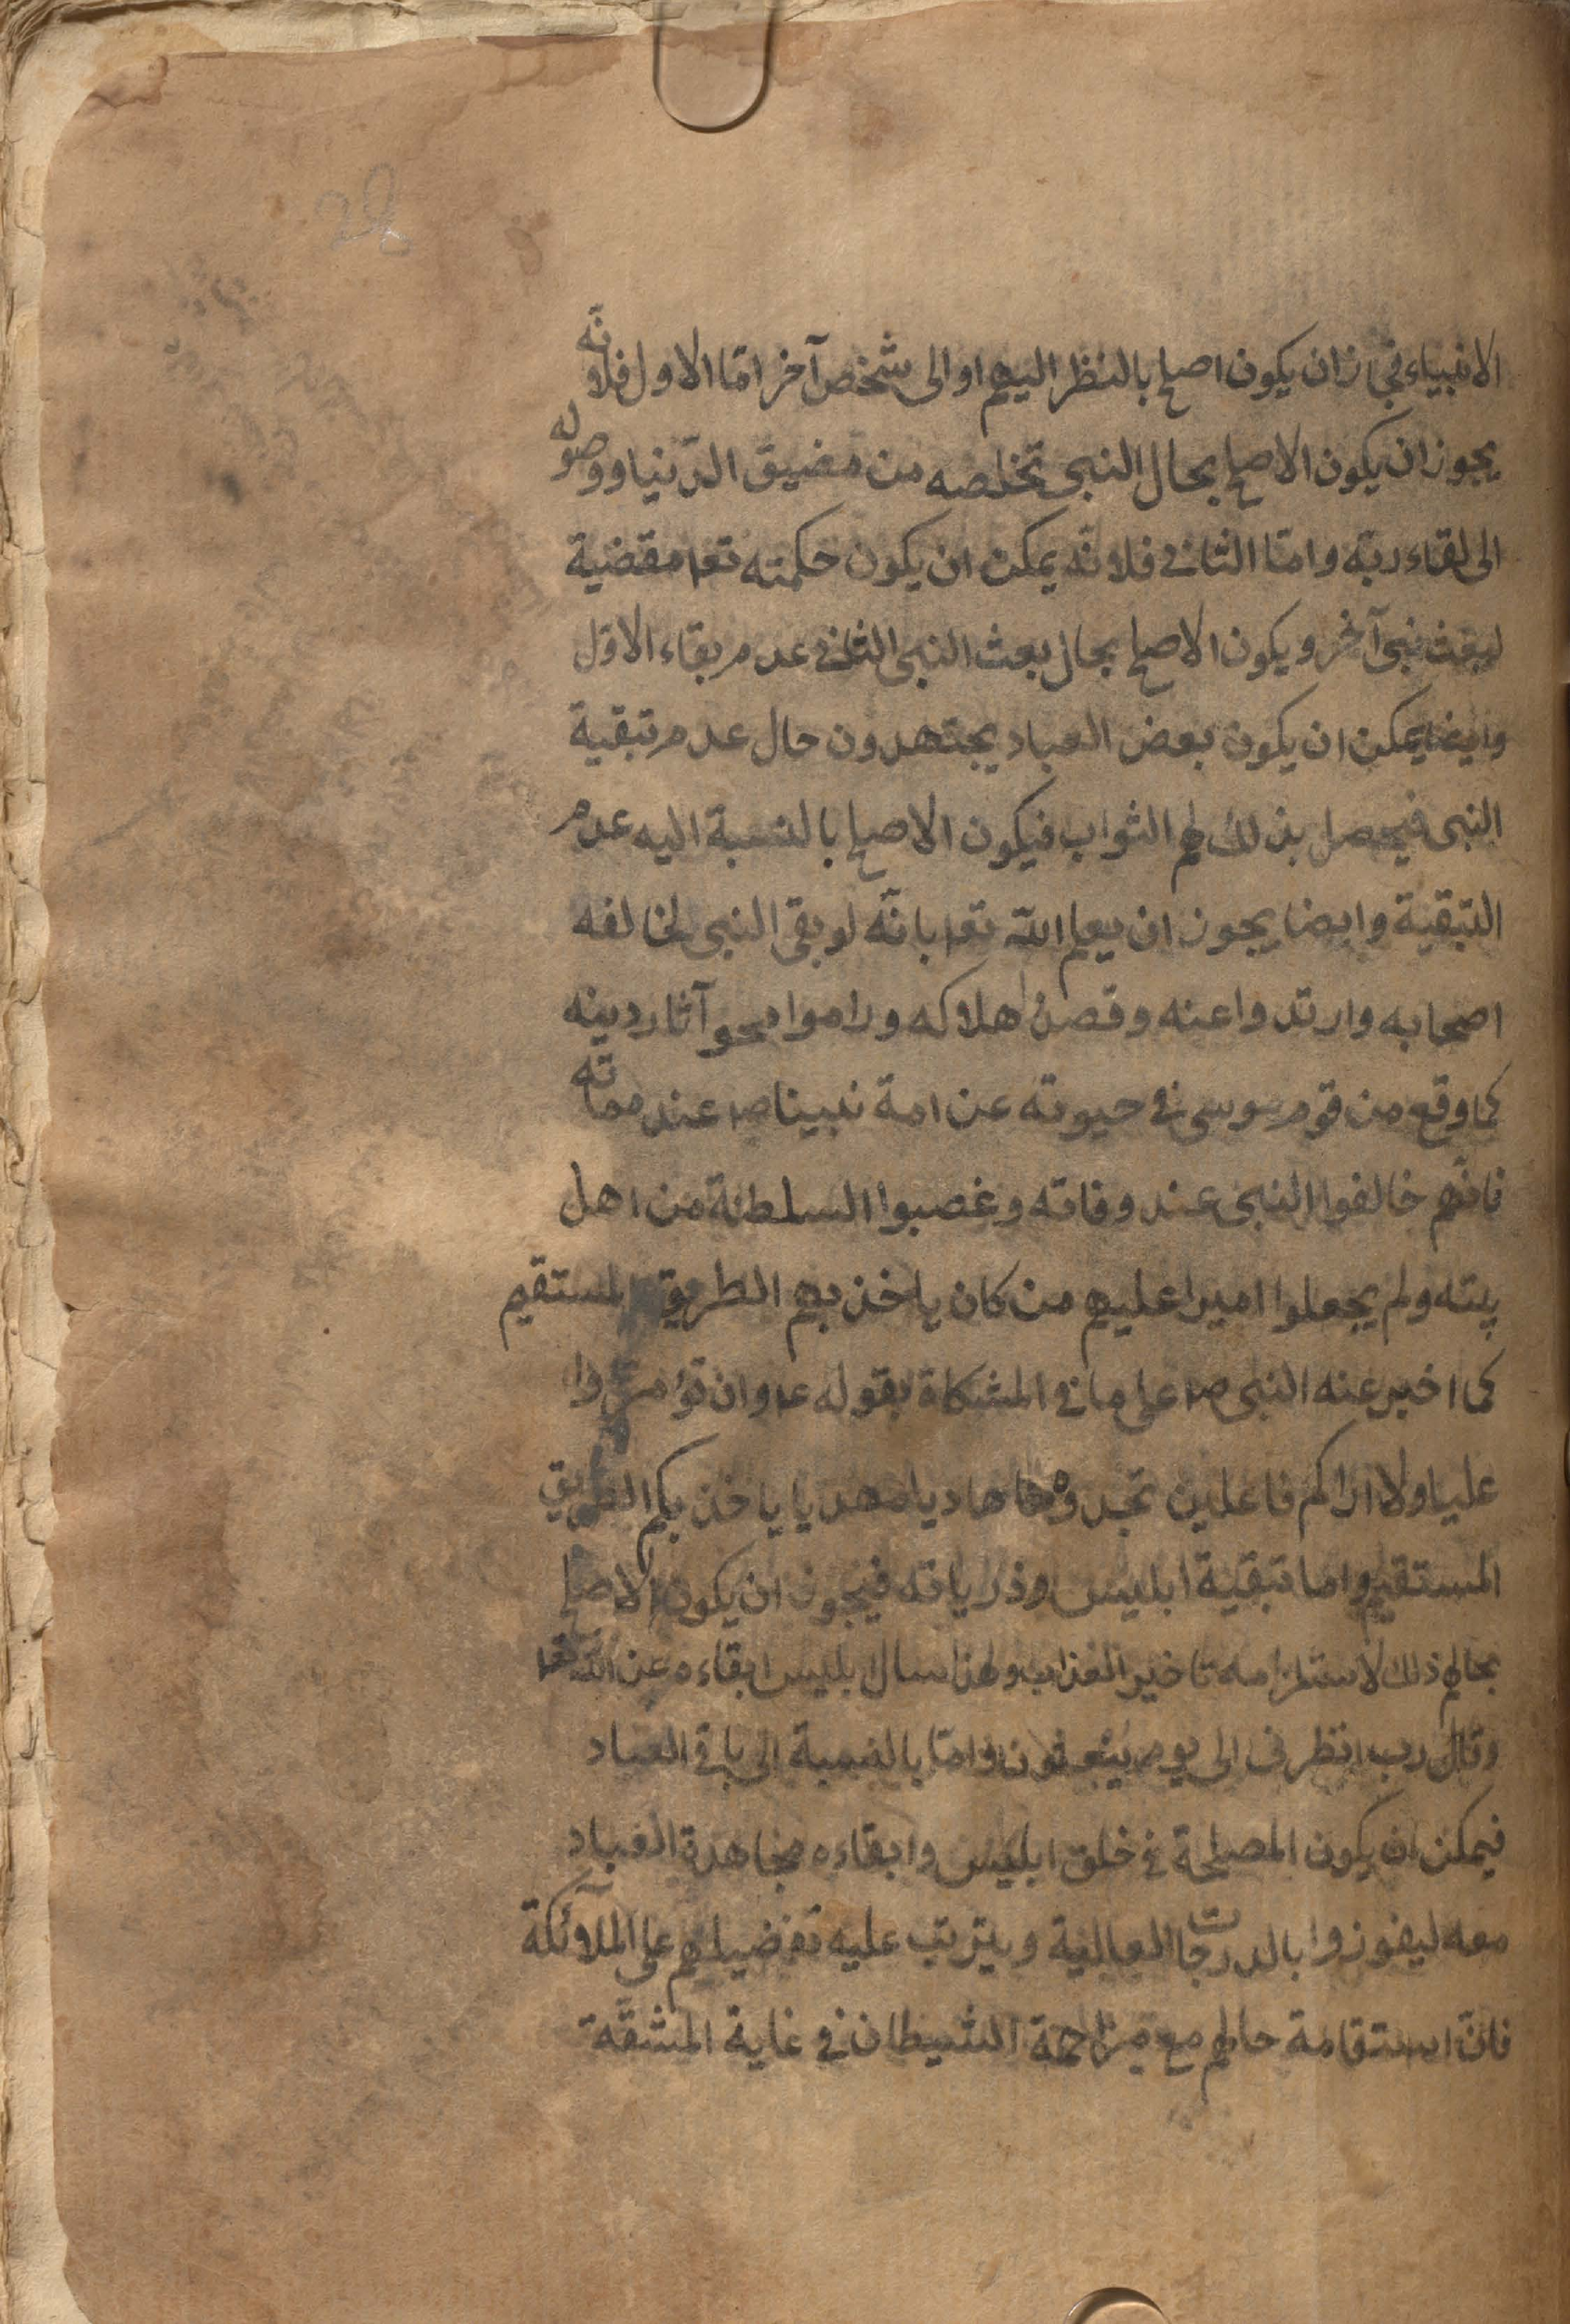 الانبياء فجاز ان يكون اصلح بالنظر اليهم او الى شخص آخر امّا الاول فلانّه
يجوز ان يكون الاصلح بحال النبى تخلصه من مضيق الدّنيا ووصوله
الى لقاء ربّه وامّا الثانى فلانّه يمكن ان يكون حكمته تعا مقضية
لبعث نبى آخر ويكون الاصلح بحال بعث النبى الثانى عدم بقاء الاوّل
وايضا يمكن ان يكون بعض العباد يجتهدون حال عدم تبقية
النبى فيحصل بذلك لهم الثواب فيكون الاصلح بالنسبة اليه عدم
التبقية وايضا يجوز ان يعلم الله تعا بانّه لو بقى النبى لخالفه
اصحابه وارتدوا عنه وقصدوا هلاكه وراموا محو آثار دينه
كما وقع من قوم موسى فى حيوته عن امة نبيناص عند مماته
فانّهم خالفوا النبى عند وفاته وغصبوا السلطنة من اهل
بيته ولم يجعلوا اميرا عليهم من كان ياخذ بهم الطريق المستقيم
كما اخبر عنه النبى ص على ما فى المشكاة بقوله ع وان تؤمروا
عليا ولا اراكم فاعلين تجدوه هاديا مهديا ياخذ بكم الطريق
المستقيم واما تبقية ابليس وذرياته فيجوز ان يكون الاصلح
بحالهم ذلك لاستلزامه تاخير العذاب ولهذا سال ابليس ابقاءه عن الله تعا
وقال رب انظرنى الى يوم يبعثون وامّا بالنسبة الى باقى العباد
فيمكن ان يكون المصلحة فى خلق ابليس وابقاءه مجاهدة العباد
معه ليفوزوا بالدرجات العالية ويترتب عليه تفضيلهم على الملآئكة
فانّ استقامة حالهم مع مزاحمة الشيطان فى غاية المشقّة